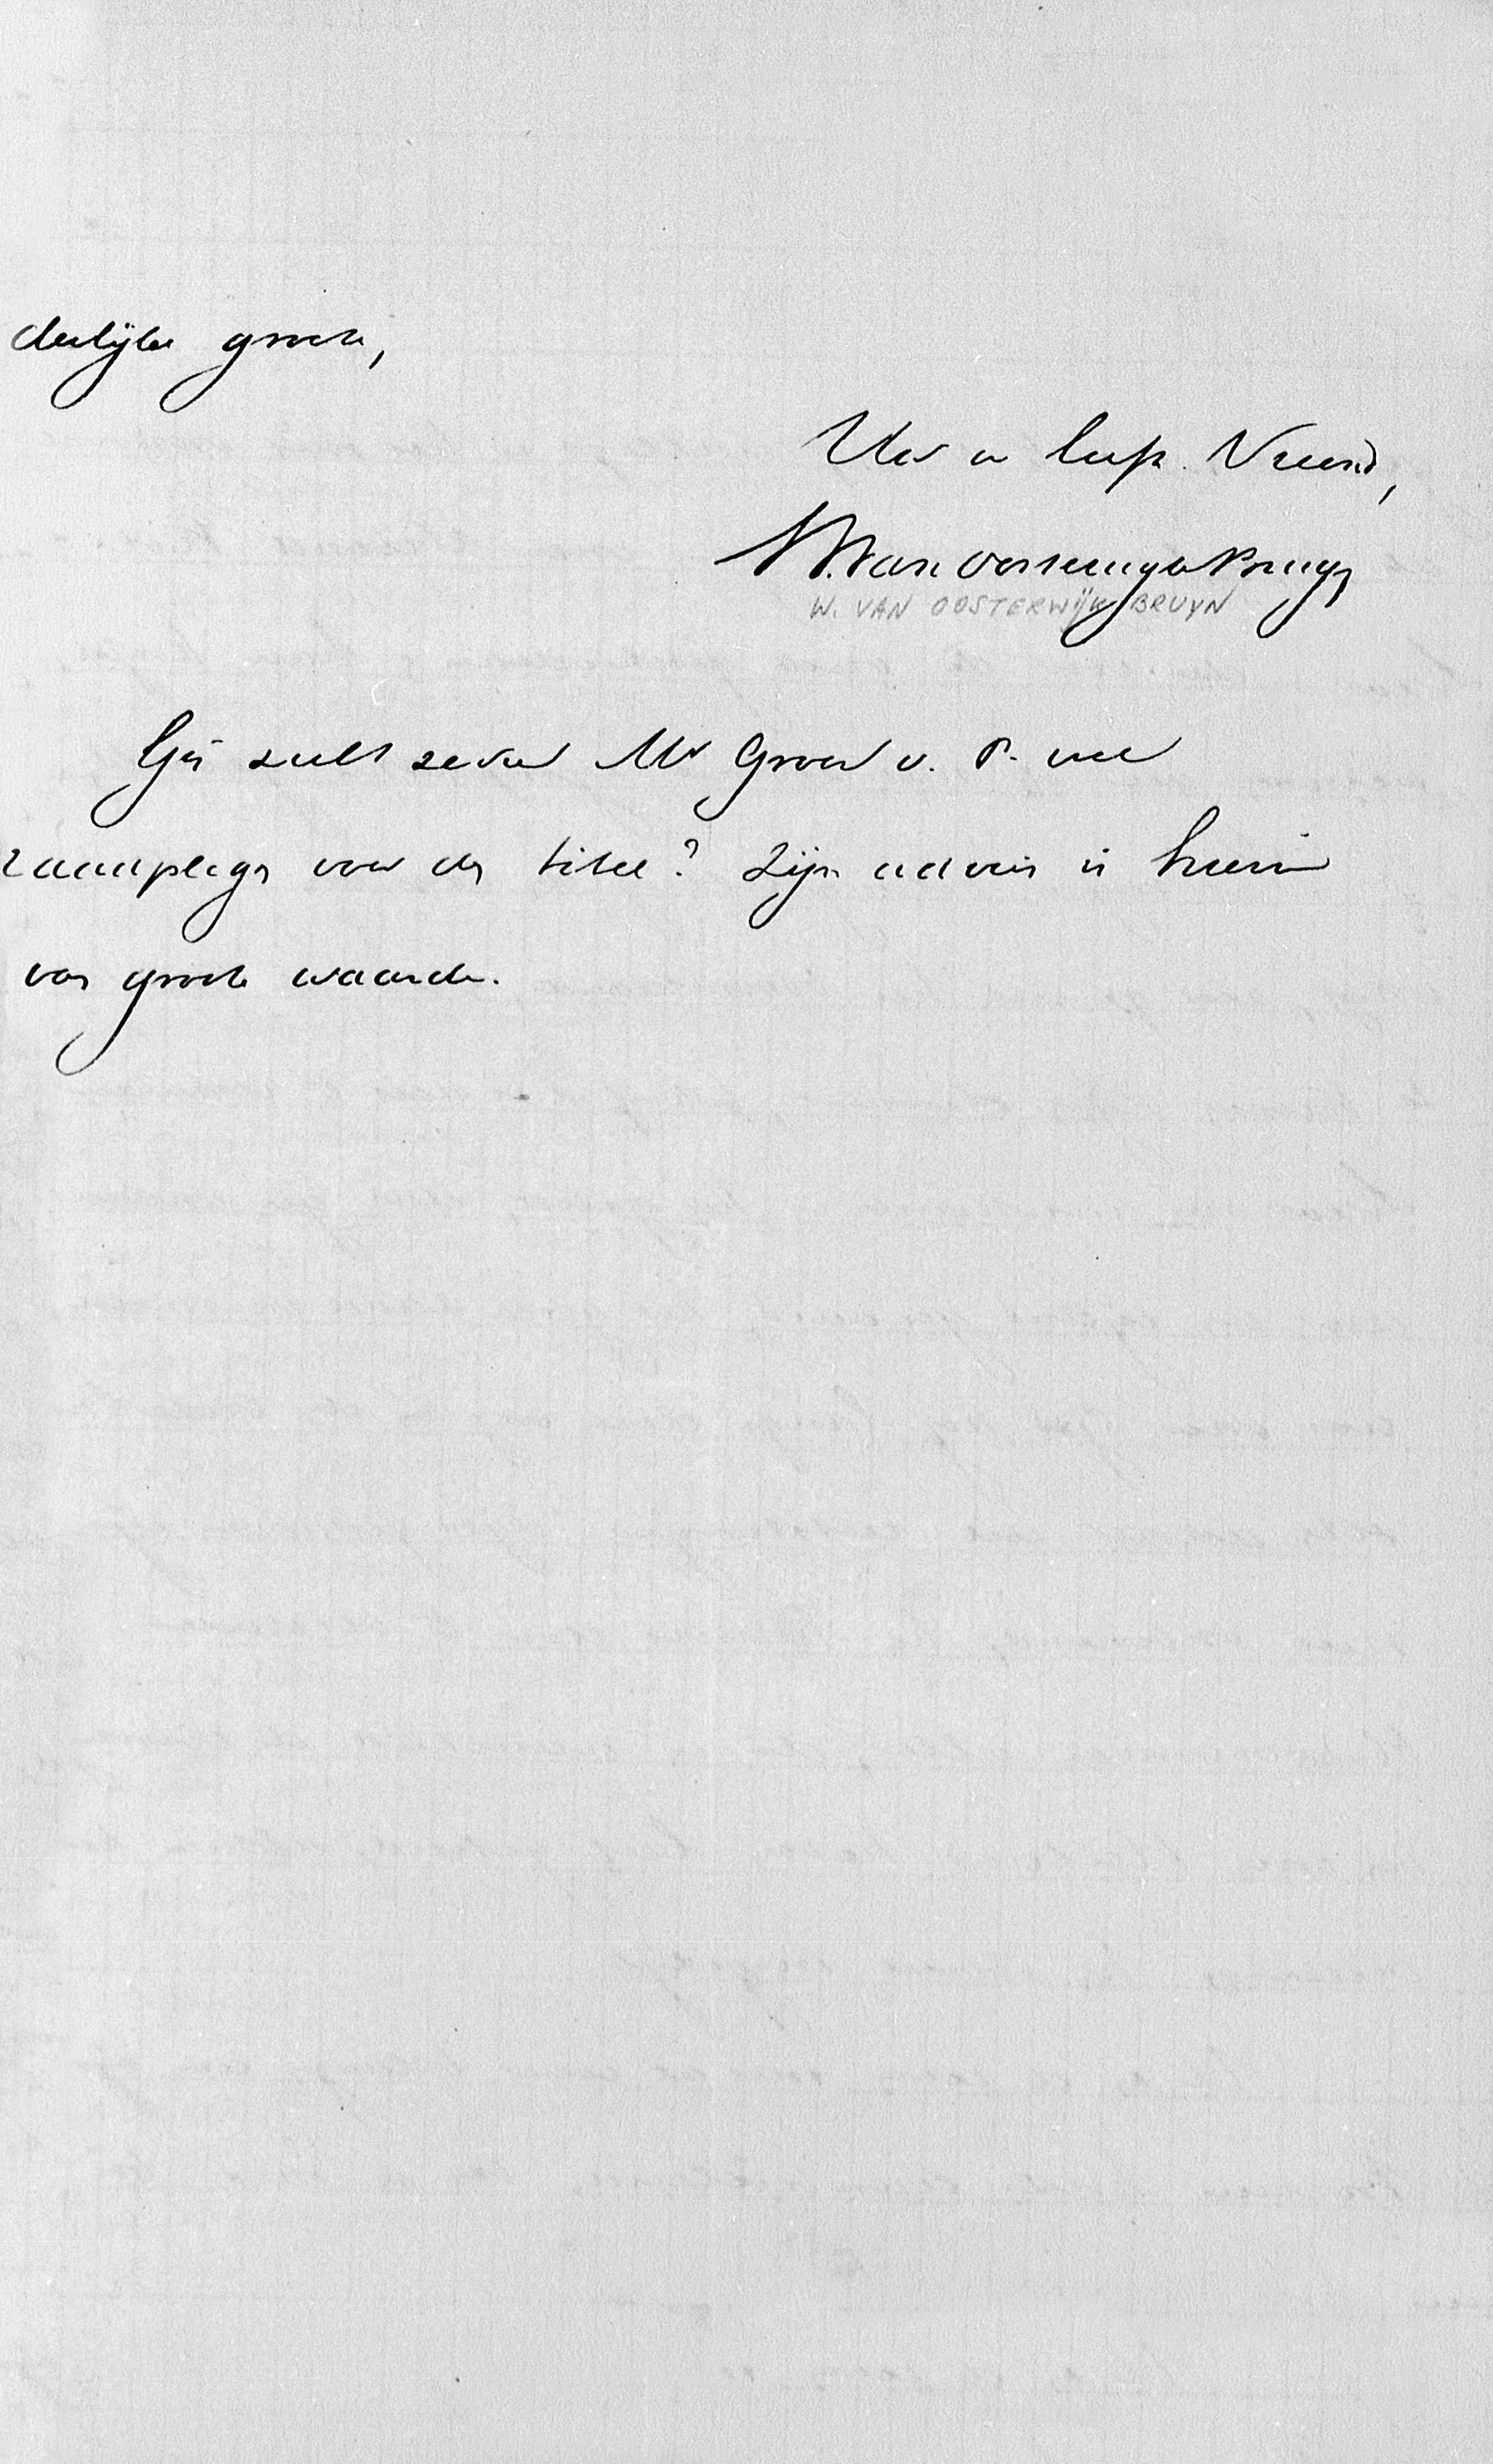 delijke groete,
Uw in liefde Vriend,
W. van Oosterwijk Bruyn
W. VAN OOSTERWIJK BRUYN
Gij zult zeker Mr Groen v. P. wel
raadplegen voor den titel? Zijn advies is hierin
van groote waarde.